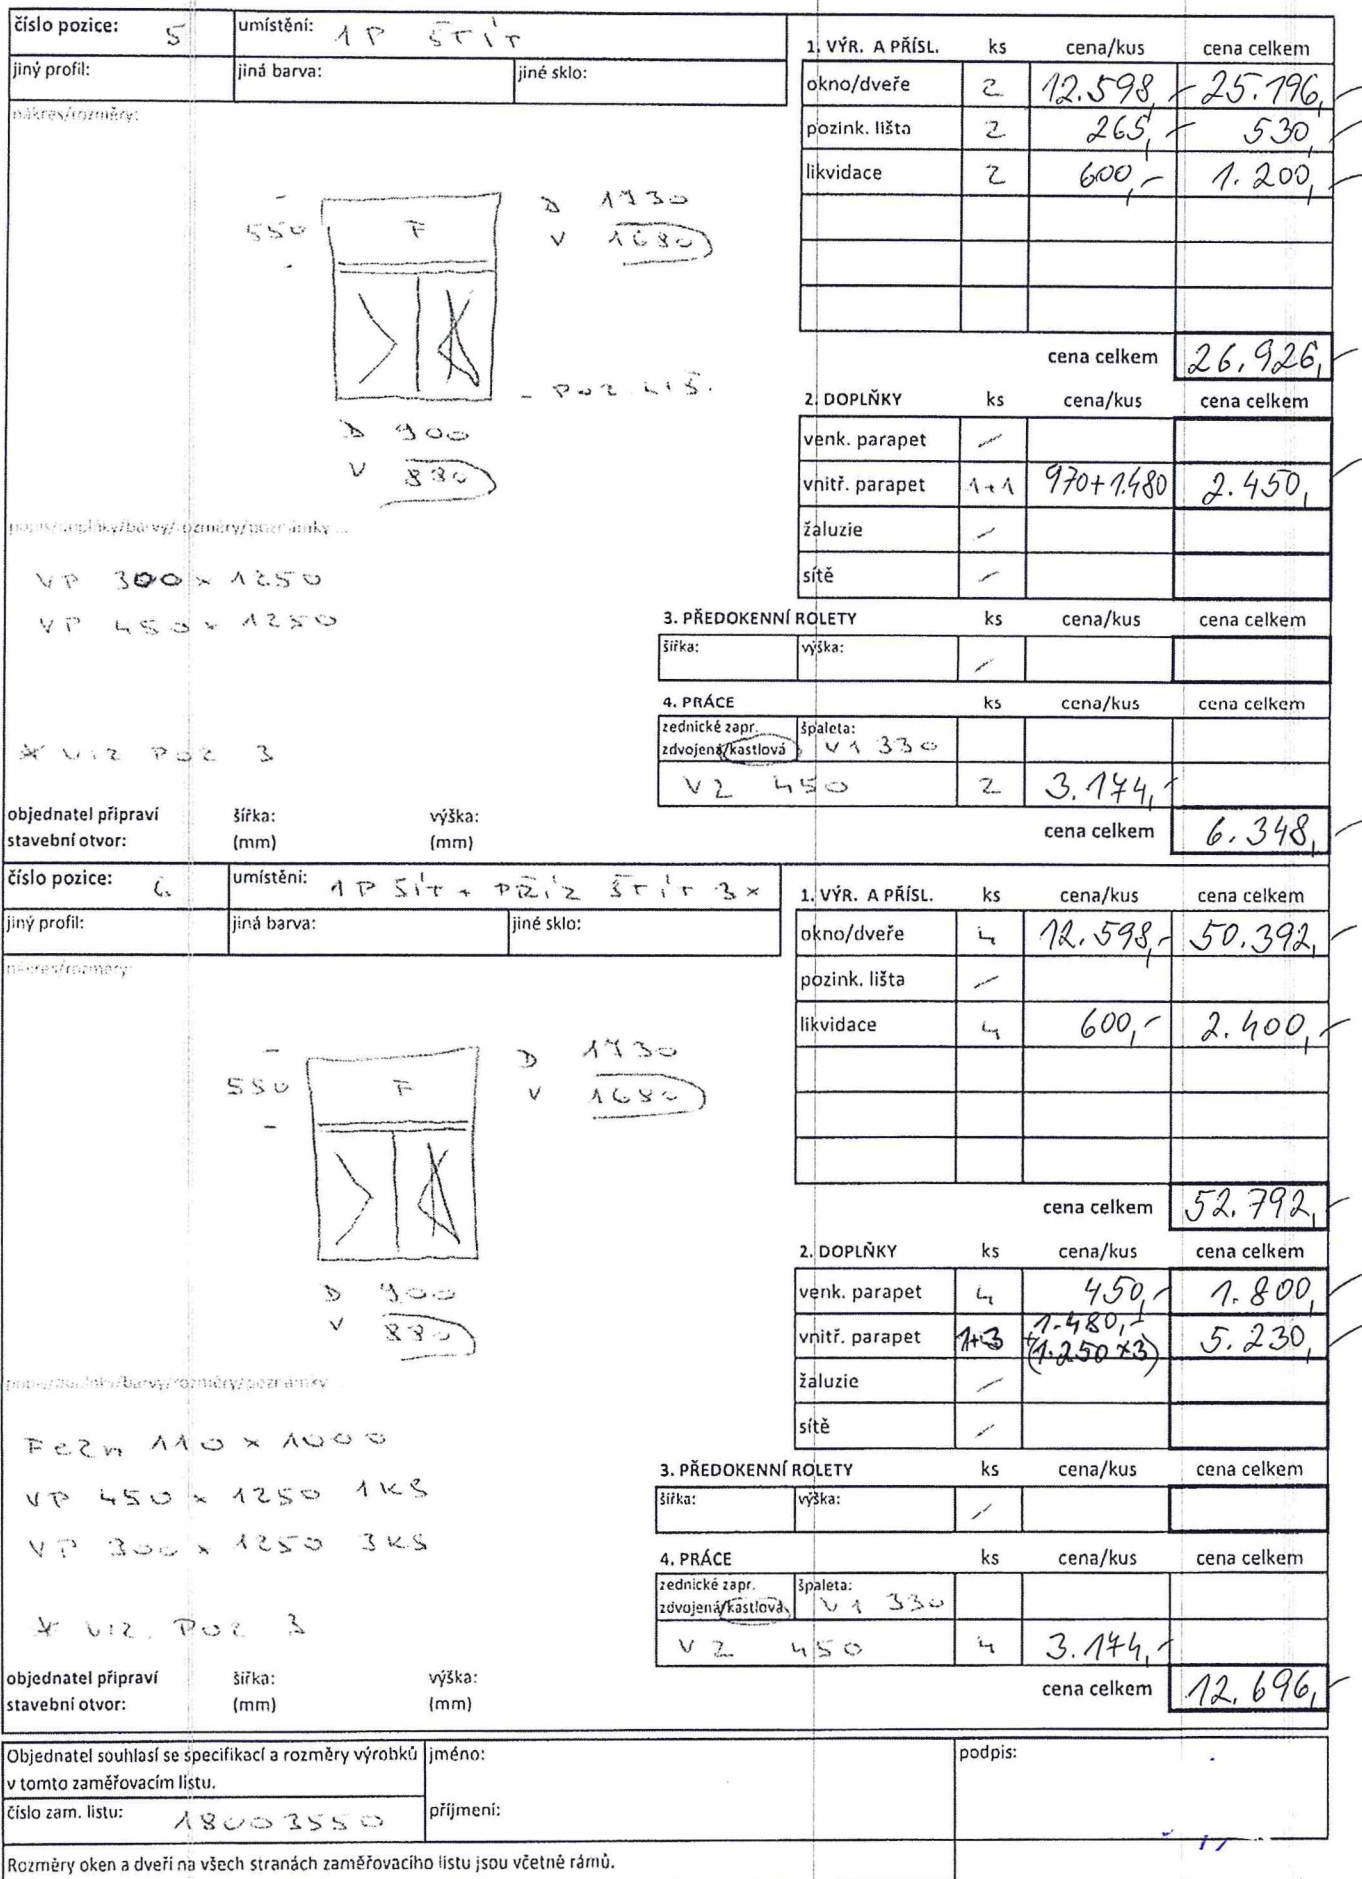 číslo pozice: 5 umístění: 1P ŠTÍT
jiný profil: jiná barva: jiné sklo:
nákres/rozměry:
550 F D 1730
V 1680
- POZ. LIŠ.
D 900
V 880
popis/doplňky/barvy/rozměry/poznámky ...
VP 300 x 1250
VP 450 x 1250
* VIZ POZ 3
objednatel připraví šířka: výška:
stavební otvor: (mm) (mm)
1. VÝR. A PŘÍSL. ks cena/kus cena celkem
okno/dveře 2 12.598,- 25.196,-
pozink. lišta 2 265,- 530,-
likvidace 2 600,- 1.200,-
cena celkem 26.926,-
2. DOPLŇKY ks cena/kus cena celkem
venk. parapet /
vnitř. parapet 1+1 970+1.480 2.450,-
žaluzie /
sítě /
3. PŘEDOKENNÍ ROLETY ks cena/kus cena celkem
šířka: výška: /
4. PRÁCE ks cena/kus cena celkem
zednické zapr. špaleta:
zdvojená/kastlová V1 330
V2 450 2 3.174,-
cena celkem 6.348,-
číslo pozice: 6 umístění: 1P ŠÍT + PŘÍZ ŠTÍT 3x
jiný profil: jiná barva: jiné sklo:
nákres/rozměry:
550 F D 1730
V 1680
D 900
V 880
popis/doplňky/barvy/rozměry/poznámky ...
FeZn 110 x 1000
VP 450 x 1250 1KS
VP 300 x 1250 3KS
* VIZ. POZ 3
objednatel připraví šířka: výška:
stavební otvor: (mm) (mm)
1. VÝR. A PŘÍSL. ks cena/kus cena celkem
okno/dveře 4 12.598,- 50.392,-
pozink. lišta /
likvidace 4 600,- 2.400,-
cena celkem 52.792,-
2. DOPLŇKY ks cena/kus cena celkem
venk. parapet 4 450,- 1.800,-
vnitř. parapet 1+3 1.480,- + (1.250 x3) 5.230,-
žaluzie /
sítě /
3. PŘEDOKENNÍ ROLETY ks cena/kus cena celkem
šířka: výška: /
4. PRÁCE ks cena/kus cena celkem
zednické zapr. špaleta:
zdvojená/kastlová V1 330
V2 450 4 3.174,-
cena celkem 12.696,-
Objednatel souhlasí se specifikací a rozměry výrobků
v tomto zaměřovacím listu.
číslo zam. listu: 18003550
jméno:
příjmení:
podpis:
Rozměry oken a dveří na všech stranách zaměřovacího listu jsou včetně rámů.